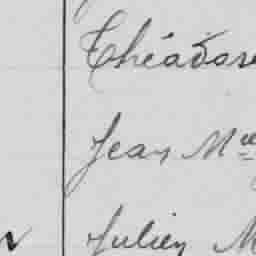 Théodore
Jean Mie
Julien M